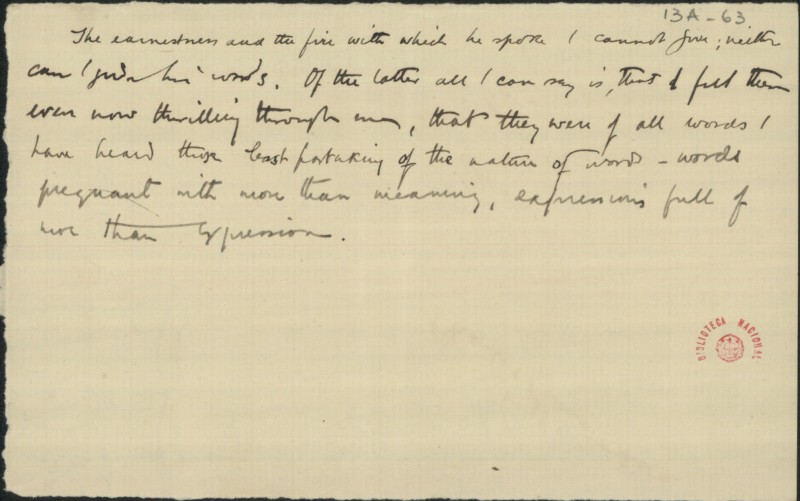 13A-63
The earnestness and the fire with which he spoke I cannot give; neither
can I give his words. Of the latter all I can say is, that I feel them
even now thrilling through me, that they were of all words I
have heard those least partaking of the nature of words - words
pregnant with more than meaning, expressions full of
more than expression.
BIBLIOTECA NACIONAL